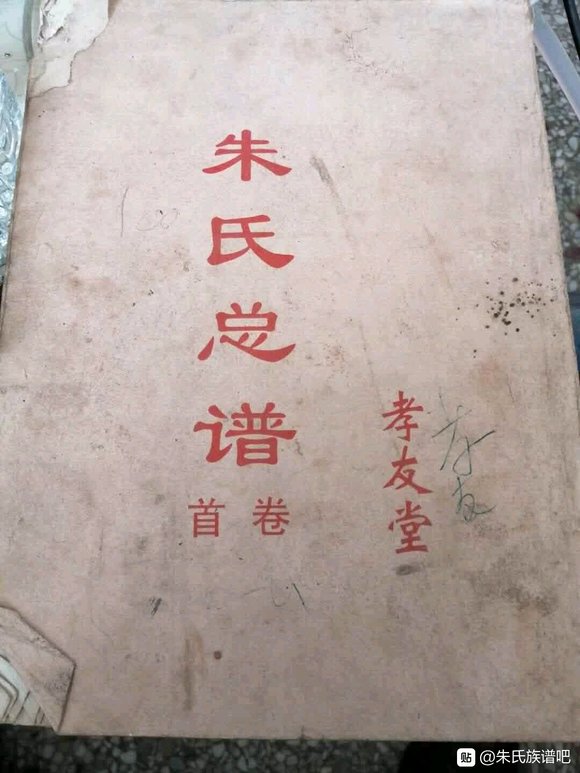 朱氏总谱
首卷
孝友堂
孝友
貼 @朱氏族谱吧